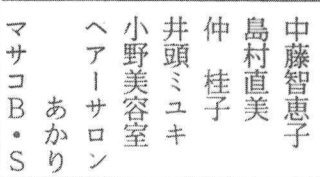 中藤智恵子
島村直美
仲　桂子
井頭ミユキ
小野美容室
ヘアーサロン
あかり
マサコB・S